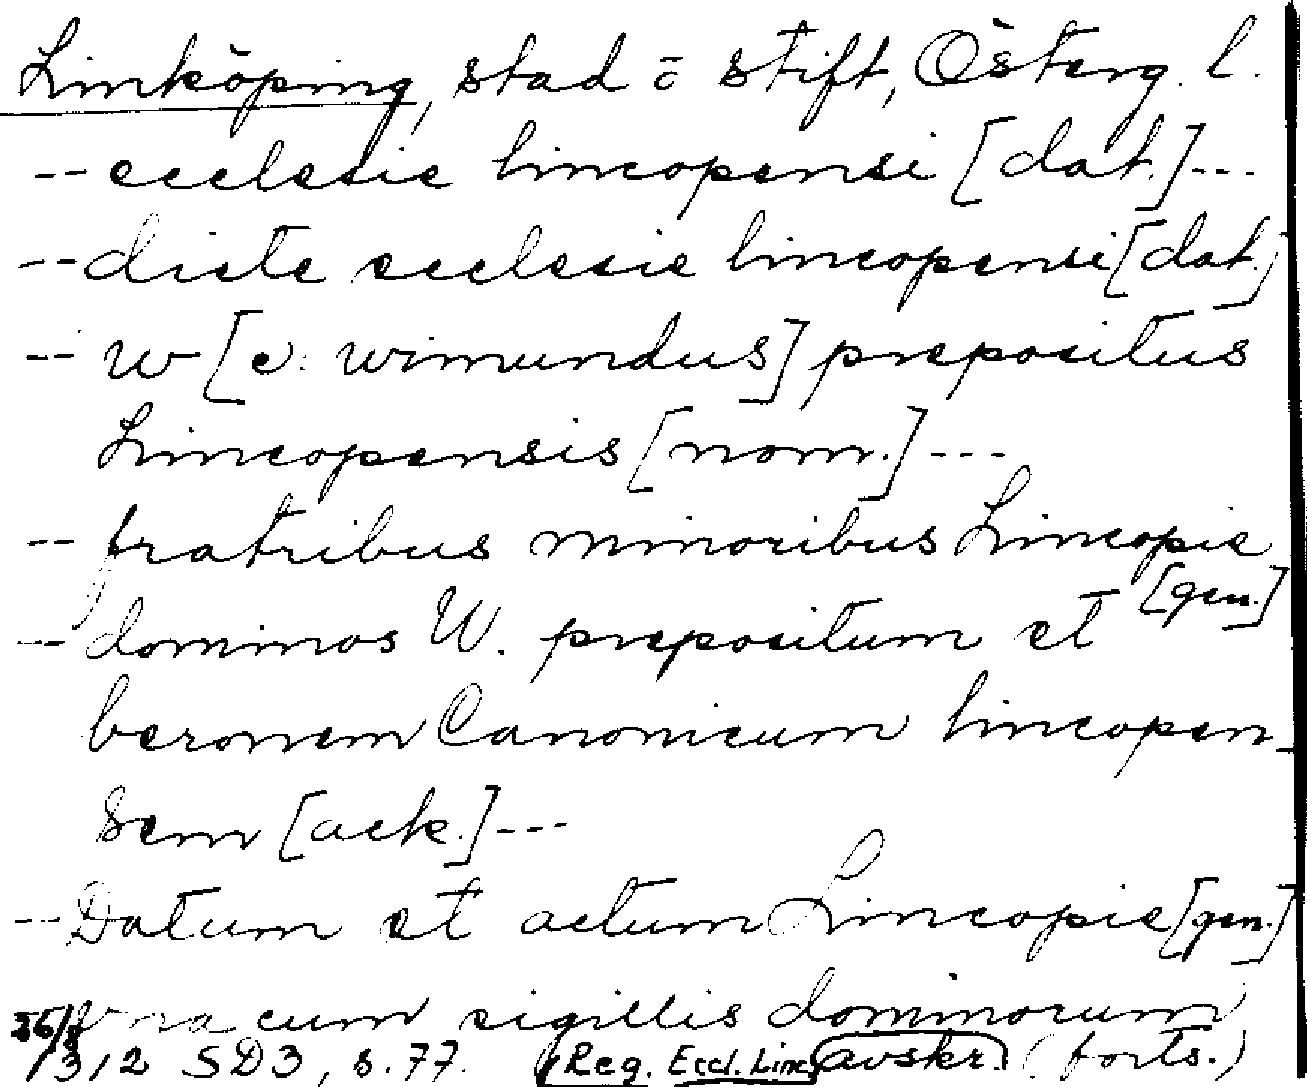 Linköping, stad o stift, Österg. l.
-- ecclesie lincopensi [dat.] ---
-- dicte ecclesie lincopensi [dat.]
-- w [c: wimundus] prepositus
Lincopensis [nom.] ---
-- fratribus minoribus Lincopie
[gen.]
-- dominos W. prepositum et
beronem Canonicum lincopen-
sem [ack.] ---
-- Datum et actum Lincopie [gen.]
vna cum sigillis dominorum
1312 SD3, s. 77. (Reg. Eccl. Linc avskr.) (forts.)